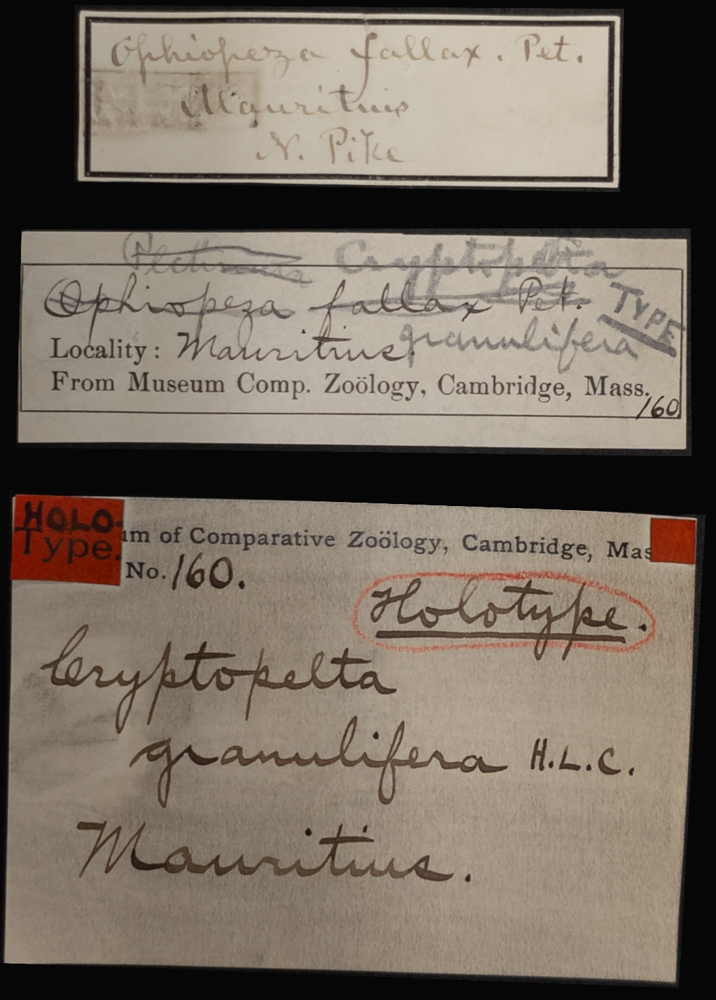 Ophiopeza fallax. Pet.
Mauritius
N. Pike
Cryptopelta
Ophiopeza fallax Pet.
TYPE
Locality: Mauritius. granulifera
From Museum Comp. Zoölogy, Cambridge, Mass.
160
HOLO-
Type.
um of Comparative Zoölogy, Cambridge, Mas
No. 160.
Holotype.
Cryptopelta
granulifera H.L.C.
Mauritius.